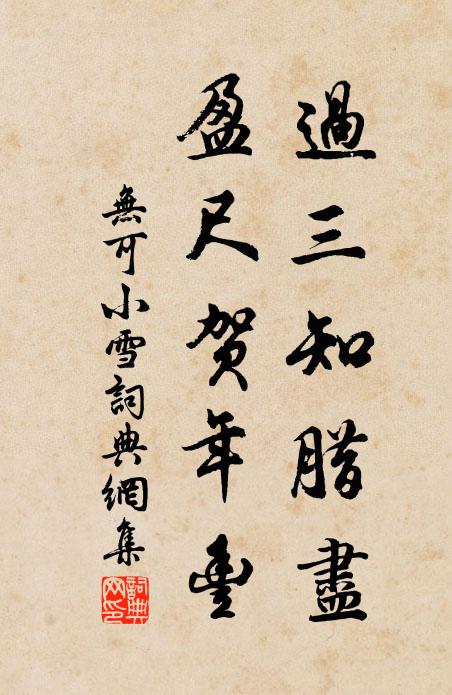 過三知腊盡
盈尺賀年豊
無可小雪詞典網集
詞典網印